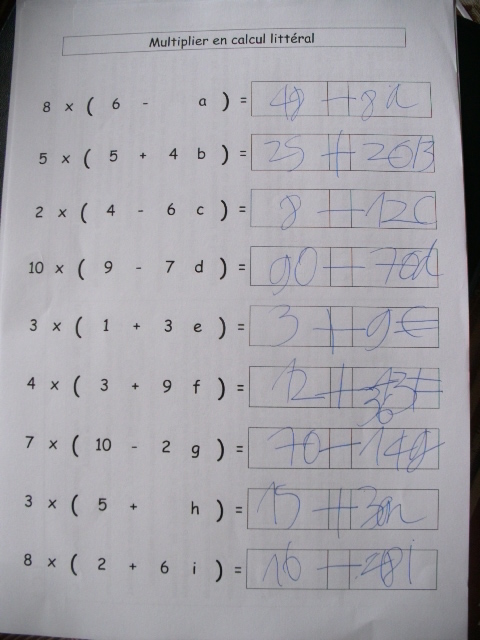 Multiplier en calcul littéral
8 x ( 6 - a ) = 48 - 8a
5 x ( 5 + 4 b ) = 25 + 20B
2 x ( 4 - 6 c ) = 8 - 12C
10 x ( 9 - 7 d ) = 90 - 70d
3 x ( 1 + 3 e ) = 3 + 9e
4 x ( 3 + 9 f ) = 12 +
36
7 x ( 10 - 2 g ) = 70 - 14g
3 x ( 5 + h ) = 15 +
8 x ( 2 + 6 i ) = 16